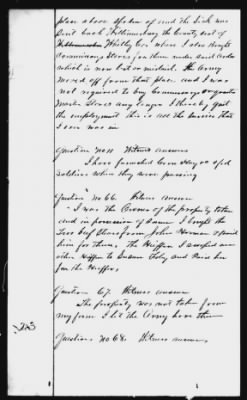 place above spoken of and the Sick was
sent back Williamsburg the County seat of
Whitley Co. where I also bought
Commissary Stores for them under said order
which is now lost or mislaid. The Army
moved off from that place and I was
not required to buy Commissary or Quarter
Master Stores any longer I thereby quit
the employment this is all the service that
I ever was in
Question No 11 Witness answers
I have furnished corn Hay or fed
soldiers when they were passing
Question No 66. Witness answers
I was the Owner of the property taken
and in possession of same I bought the
Two beef Steers from John & paid
him for them. The Heiffer I
other Heiffer to Susan and paid her
for the Heiffer,
Question 67. Witness answers
The property was not taken from
my farm I let the Army have them
Question No 68. Witness answers